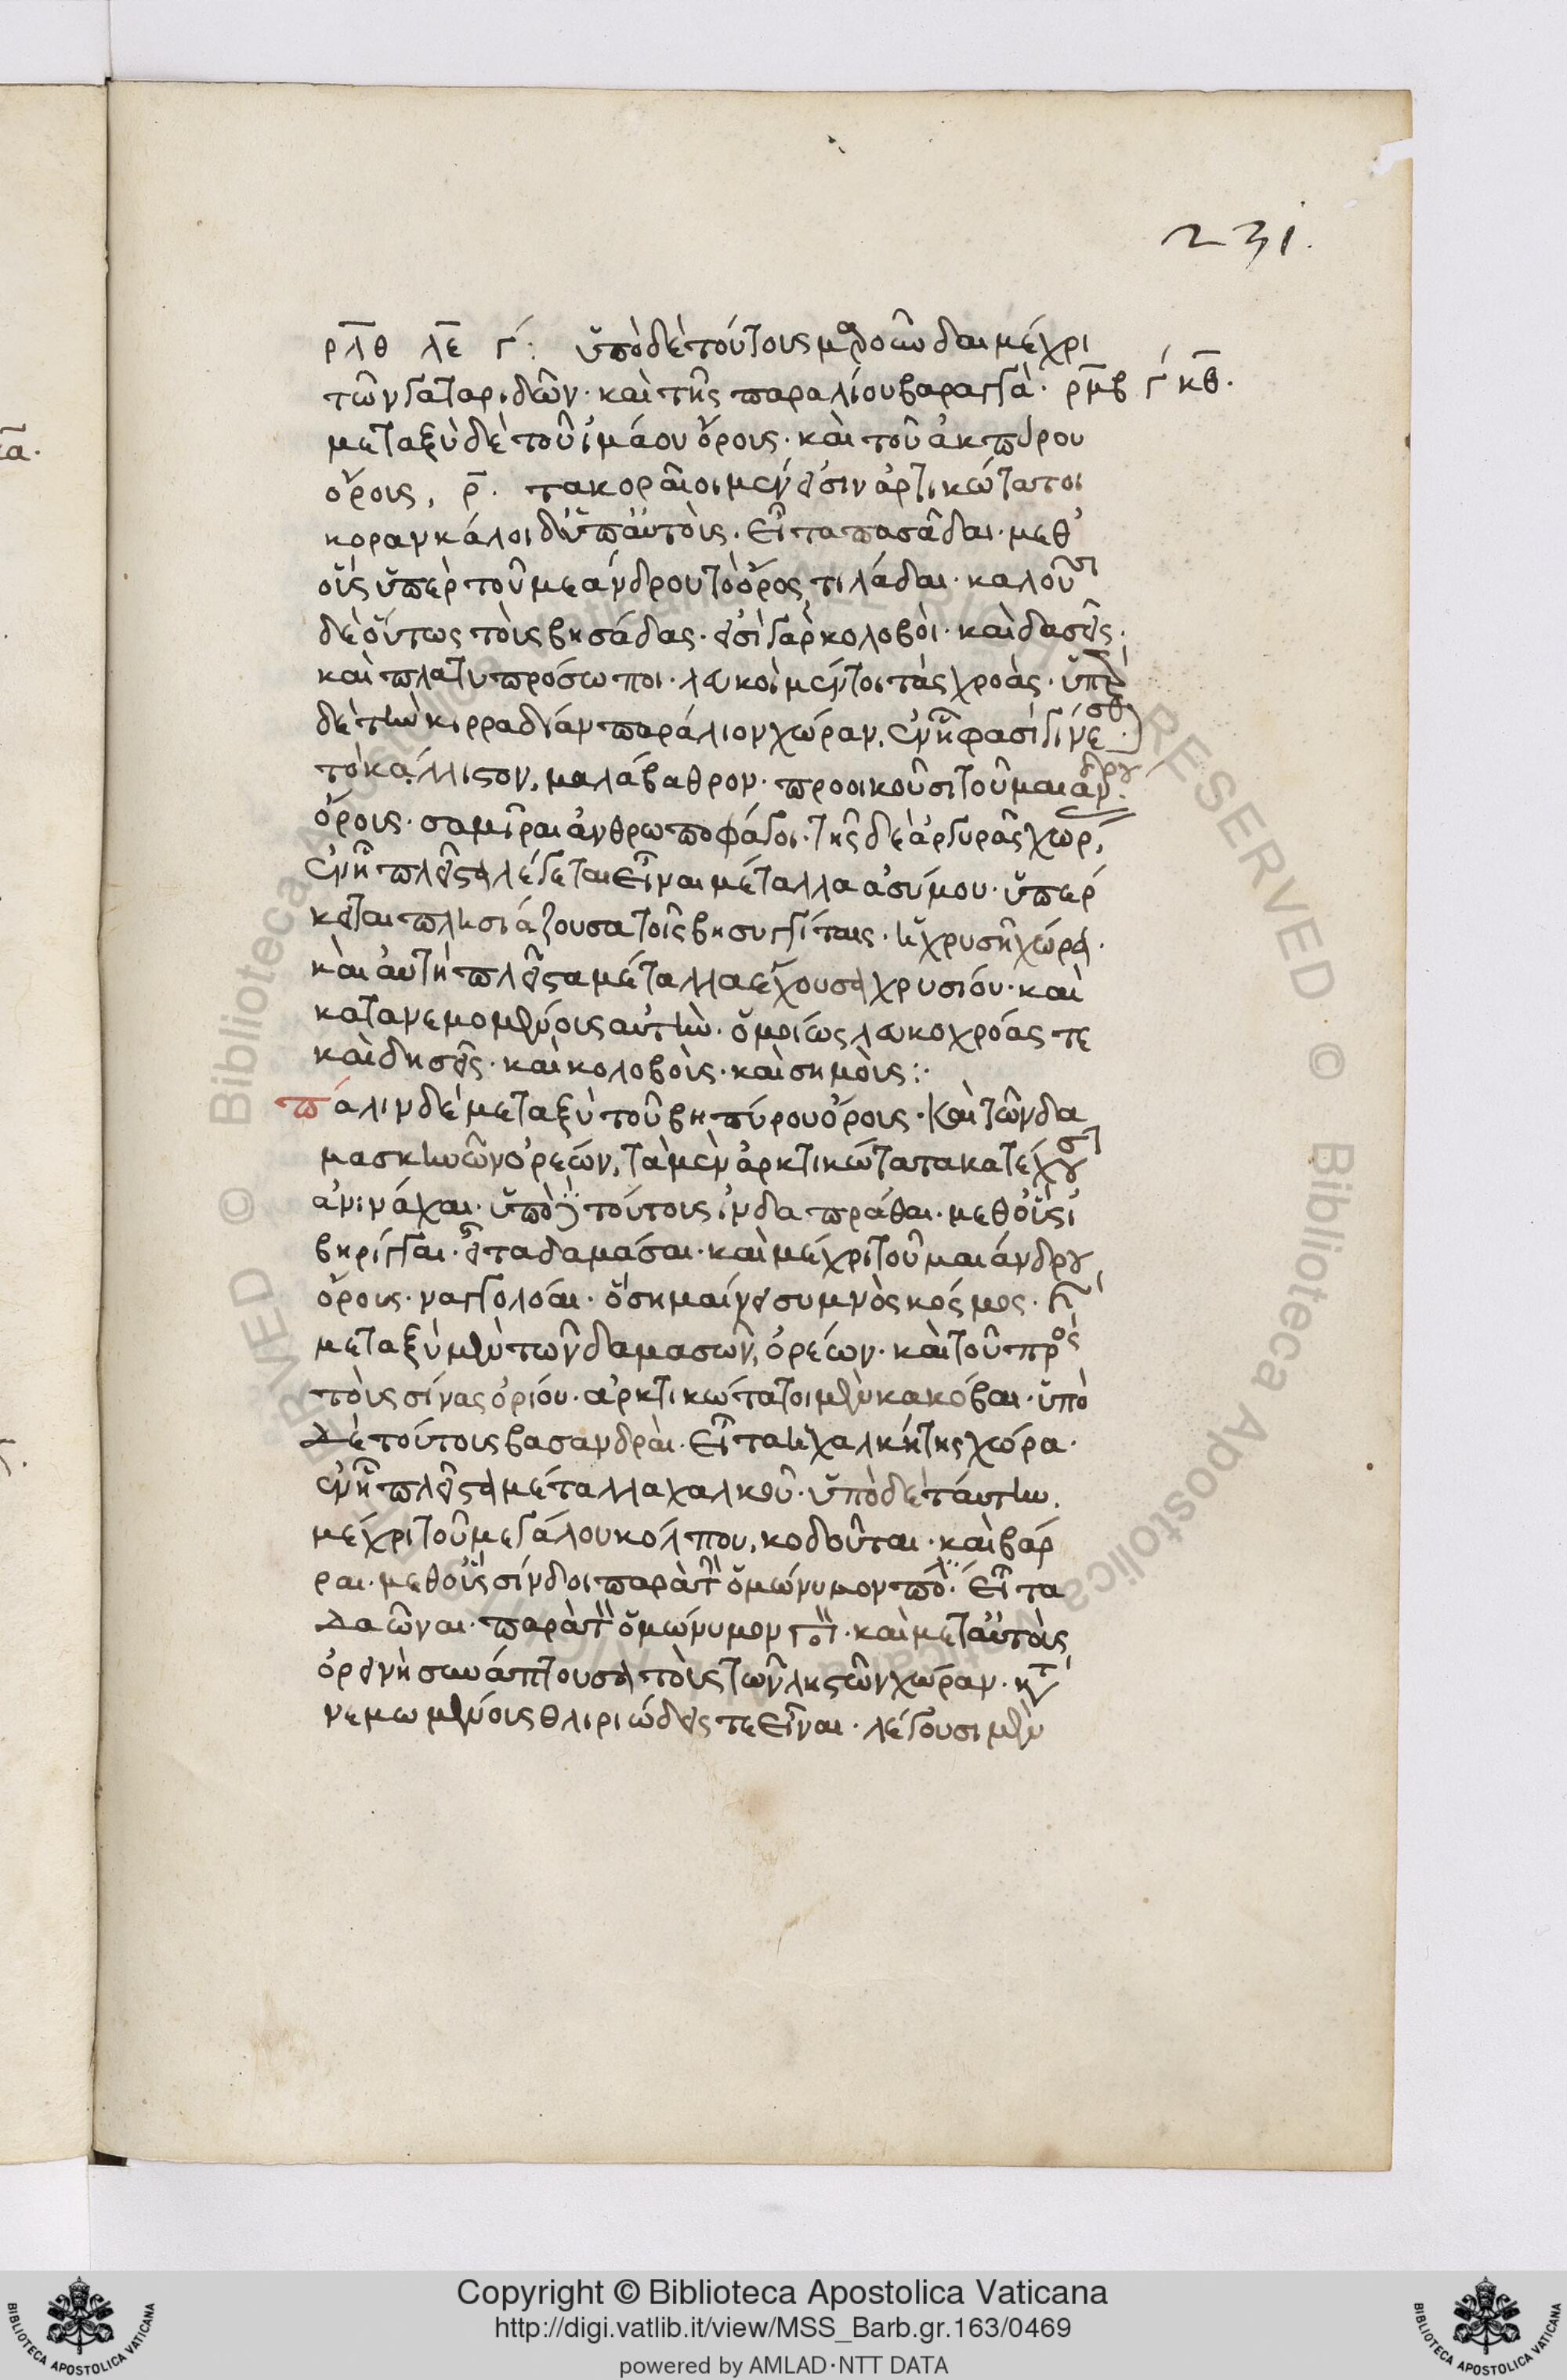 231.
ρλθ λε γʹ: ὑπὸ δὲ τούτους μαρουῶδαι μέχρι
τῶν γαγαριδῶν· καὶ τῆς παραλίου βαραγγὰ· ρμβ γʹ κθ·
μεταξὺ δὲ τοῦ ἰμάου ὄρους· καὶ τοῦ
ὄρους, ρ· τακοραῖοι μέν εἰσιν ἀρτικώτατοι
κορανκάλοι δ' ὑπ' αὐτοὺς· εἶτα πασᾶδαι· μεθ'
οὓς ὑπὲρ τοῦ μεάνδρου τὸ ὄρος, τιλάδαι· καλοῦσι
δὲ οὕτως τοὺς βησάδας· εἰσὶ γὰρ κολοβοὶ· καὶ δασεῖς·
καὶ πλατυπρόσωποι· λευκοὶ μέντοι τὰς χροάς· ὑπὲρ
δὲ τὴν κιρραδίαν παράλιον χώραν, ἐν ᾗ φασὶ γίνεσθαι
τὸ κάλλιστον, μαλάβαθρον· προοικοῦσι τοῦ μαιάνδρου
ὄρους· σαμῖραι ἀνθρωποφάγοι· τῆς δὲ ἀργυρᾶς χώρ,
ἐν ᾗ πλεῖστα λέγεται εἶναι μέταλλα ἀσύμου· ὑπέρ
κειται πλησιάζουσα τοῖς βησυγγίταις· ἡ χρυσῆ χώρα·
καὶ αὐτὴ πλεῖστα μέταλλα ἔχουσα χρυσιόυ· καὶ
κατανεμομένοις αὐτὴν· ὁμοίως λευκοχρόας τε
καὶ δησεῖς· καὶ κολοβοὺς· καὶ σημοὺς:·
πάλιν δὲ μεταξὺ τοῦ βηπύρου ὄρους· καὶ τῶν δα
μασκηνῶν ὀρεῶν, τὰ μὲν ἀρκτικώτατα κατέχουσι
ἀνινάχαι· ὑπὸ δὲ τούτους ἰνδαπράθαι· μεθ' οὓς ἰ
βηρίγγαι· εἶτα δαμάσαι· καὶ μέχρι τοῦ μαιάνδρου
ὄρους· ναγγολόαι· ὃ σημαίνει συμνὸς κόσμος· καὶ
μεταξὺ μὲν τῶν δαμασῶν, ὀρέων· καὶ τοῦ πρὸς
τοὺς σίνας ὁρίου· ἀρκτικώτατοι μὲν κακόβαι· ὑπὸ
δὲ τούτους βασανδραὶ· εἶτα ἡ χαλκήτης χώρα·
ἐν ᾗ πλεῖστα μέταλλα χαλκοῦ· ὑπὸ δὲ ταύτην,
μέχρι τοῦ μεγάλου κόλπου, κοδοῦται· καὶ βάρ
ραι· μεθ' οὓς σίνδοι παρὰ τὴν ὁμώνυμον πόλ· εἶτα
δαῶναι· παρὰ τὸν ὁμώνυμον ποτ· καὶ μετ' αὐτοὺς
ὀρεινὴ συνάπτουσα τοὺς τῶν λῃστῶν χώραν· κατ
νεμωμένοις θλιριώδεις τε εἶναι· λέγουσι μὲν